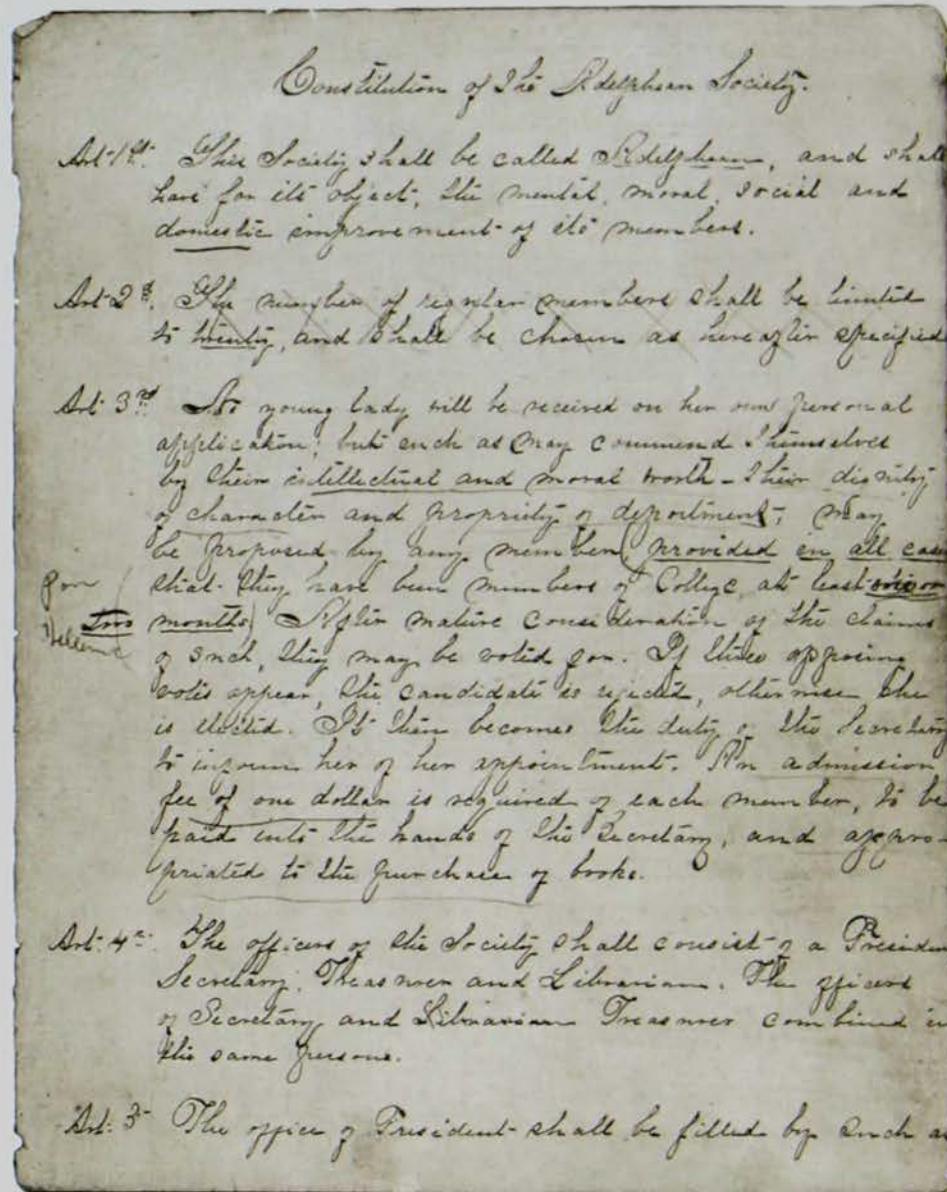 Constitution of The Adelphean Society.
Art. 1st. This Society shall be called Adelphean, and shall
have for its object, the mental, moral, social and
domestic improvement of its members.
Art. 2d. The number of regular members shall be limited
to twenty, and shall be chosen as hereafter specified
Art. 3rd. No young lady will be received on her own personal
application; but such as may commend themselves
by their intellectual and moral worth - their dignity
of character and propriety of deportment; may
be proposed by any member (provided in all cases
that they have been members of College, at least
two months) After mature consideration of the claims
of such, they may be voted for. If three opposing
votes appear, the candidate is reject, otherwise she
is elected. It then becomes the duty of the Secretary
to inform her of her appointment. An admission
fee of one dollar is required of each member, to be
paid into the hands of the Secretary, and appro-
priated to the purchase of books.
Art. 4th. The officers of the Society shall consist of a Presiden
Secretary, Treasurer and Librarian. The officers
of Secretary and Librarian Treasurer combined in
the same persons.
Art. 5 The office of President shall be filled by such a